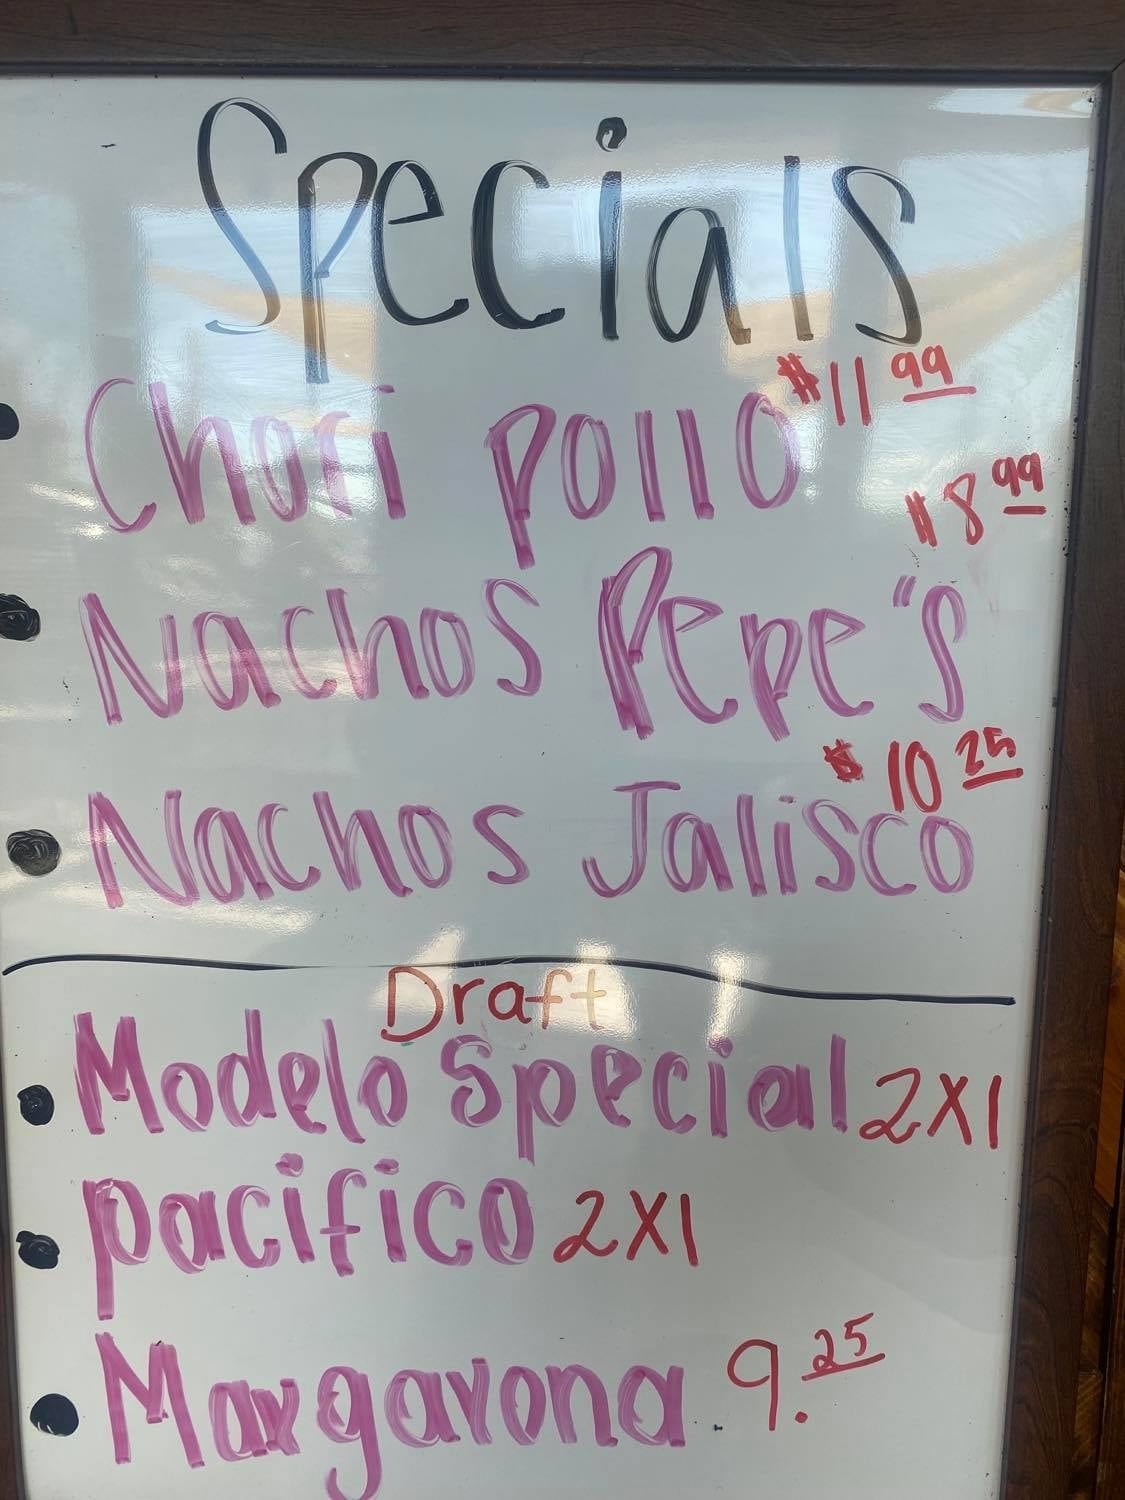 Specials
Chori pollo $11 99
$8 99
Nachos Pepe"s
$10 25
Nachos Jalisco
Draft
Modelo Special 2X1
pacifico 2X1
Margarona 9.25